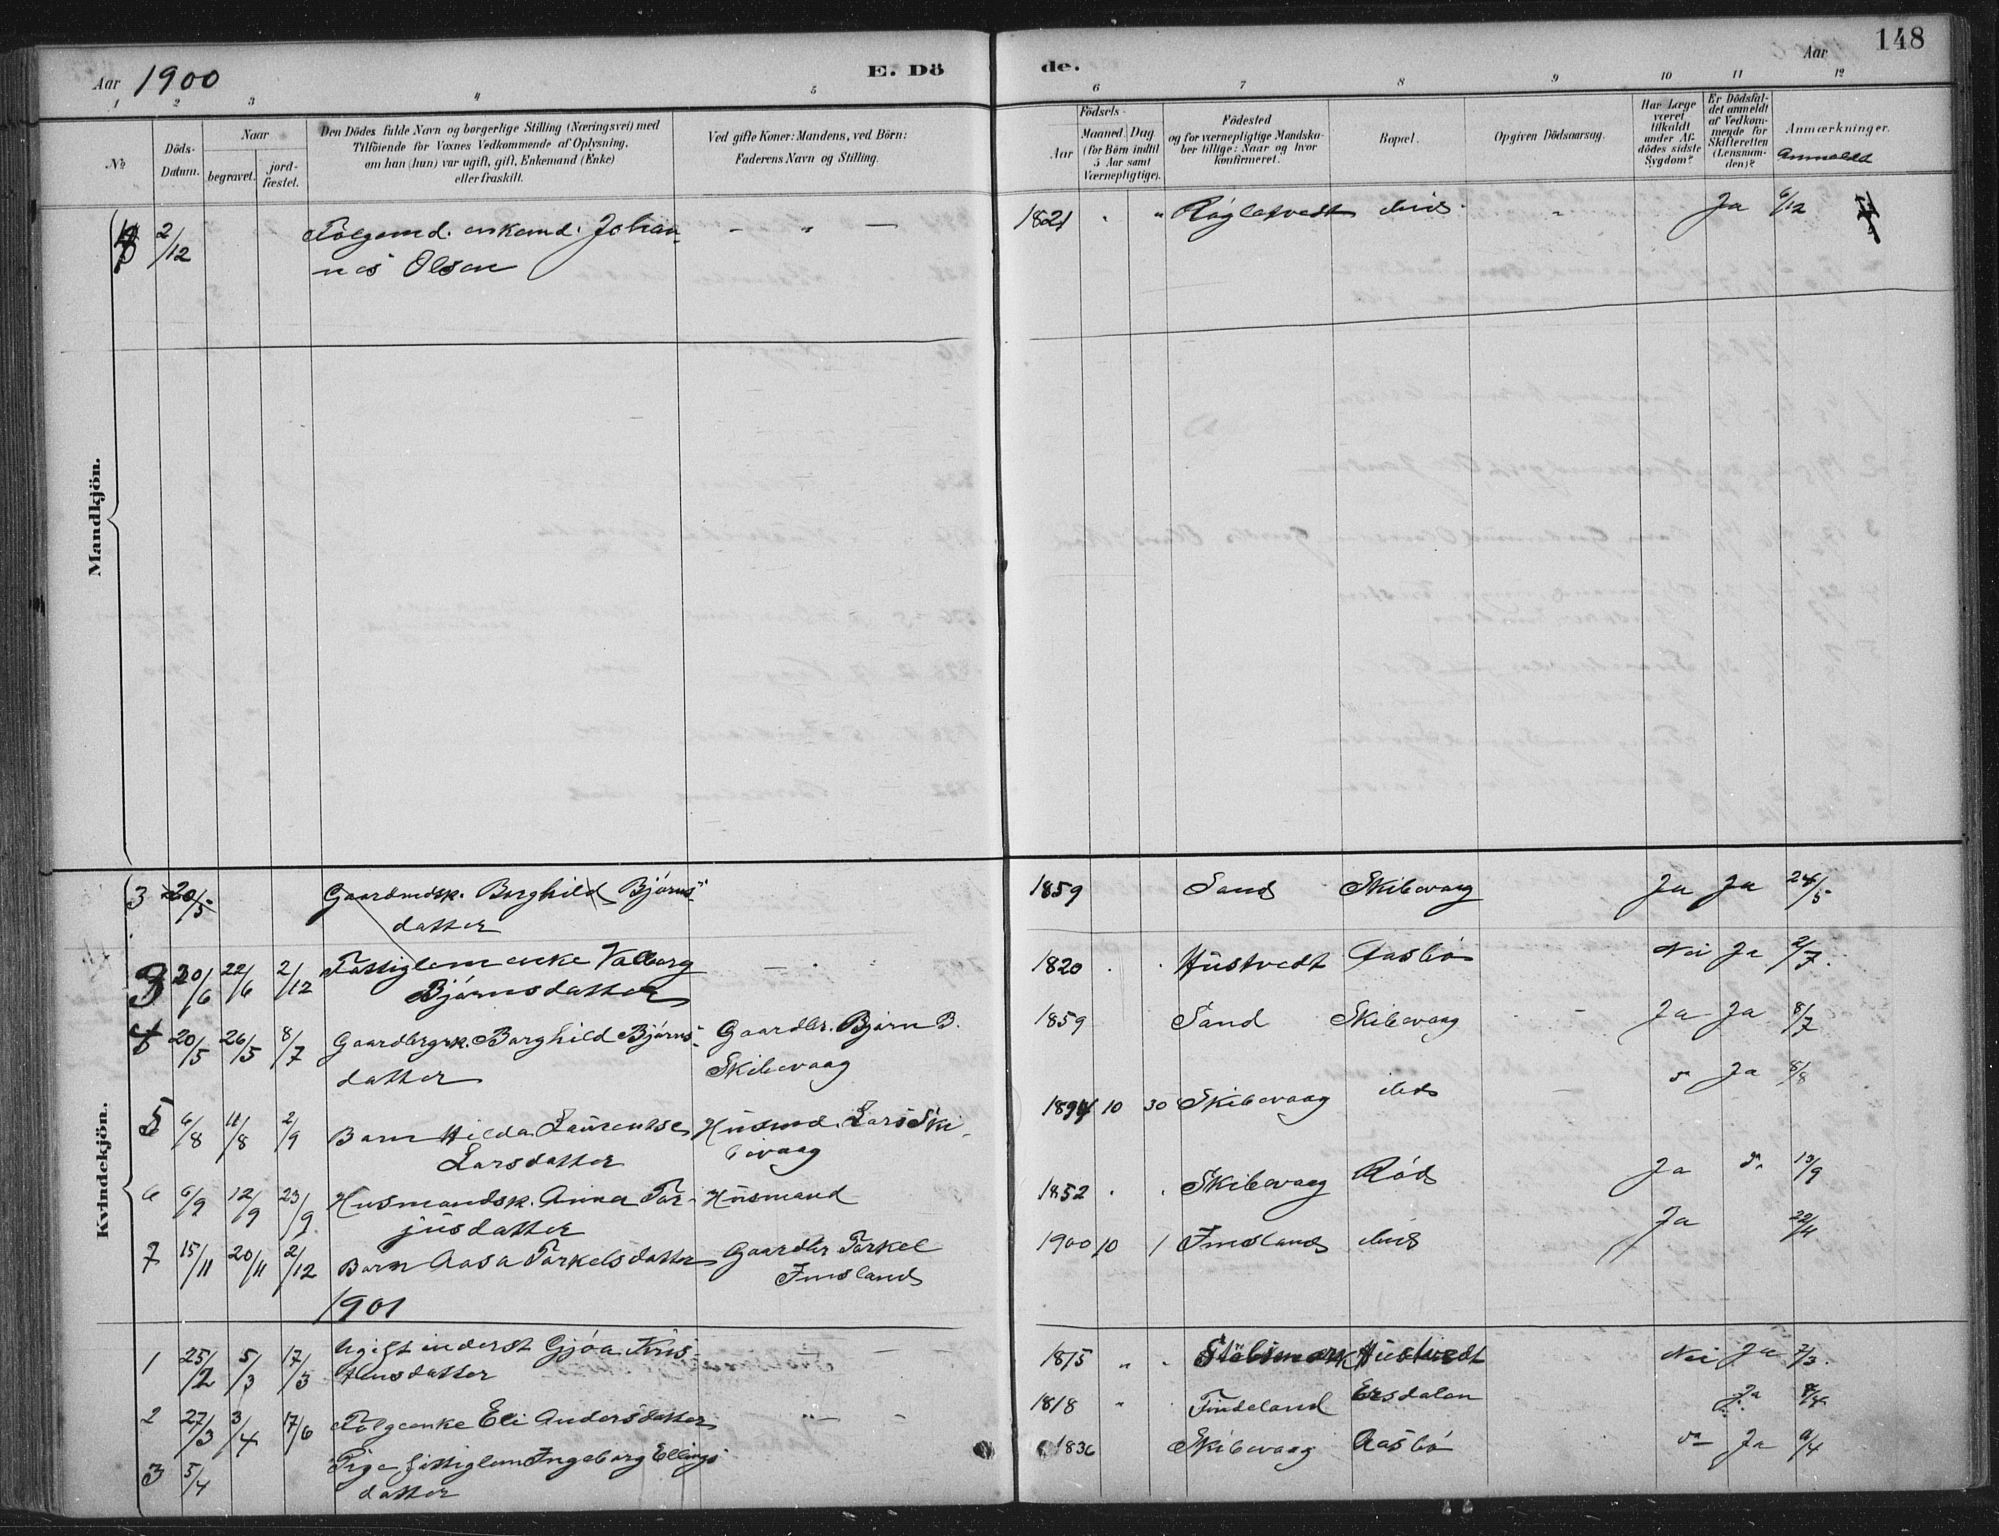 Aar 1900
E. Dö
de.
Aar
148
1 2 3 4 5 6 7 8 9 10 11 12
No.
Döds-Datum.
Naar
begravet.
jord-fæstet.
Den Dödes fulde Navn og borgerlige Stilling (Næringsvei) med
Tilföiende for Voxnes Vedkommende af Oplysning,
om han (hun) var ugift, gift, Enkemand (Enke)
eller fraskilt.
Ved gifte Koner: Mandens, ved Börn:
Faderens Navn og Stilling.
Födsels-
Aar
Maaned. Dag
(for Börn indtil
5 Aar samt
Værnepligtige).
Födested
og for værnepligtige Mandska-
ber tillige: Naar og hvor
konfirmeret.
Bopæl.
Opgiven Dödsaarsag.
Har Læge
været
tilkaldt
under Af-
dödes sidste
Sygdom?
Er Dödsfal-
det anmeldt
af Vedkom-
mende for
Skifteretten
(Lensman-
den)?
Anmærkninger.
Anmeldt
Mandkjön.
2/12 Fölgemd. enkemd. Johan- - " - 1821 " " Røgletvedt ibid. " Ja 6/12
nes Olsen
Kvindekjön.
3 20/5 Gaardmdsk. Borghild Bjørns- 1859 Sand Skibevaag Ja Ja 24/5
datter
3 20/6 22/6 2/12 Fattiglem enke Valborg 1820 Hustvedt Aasbø Nei Ja 2/7
Bjørnsdatter
4 20/5 26/5 8/7 Gaardbrgrk. Borghild Bjørns- Gaardbr. Bjørn B. 1859 Sand Skibevaag Ja Ja 8/7
datter Skibevaag
5 6/8 11/8 2/9 Barn Hilda Laurentse Husmd. Lars Ski- 1894 10 30 Skibevaag ibid Ja 8/8
Larsdatter bevaag
6 6/9 12/9 23/9 Husmandsk. Anna Tor- Husmand 1852 Skibevaag Rød Ja 13/9
jusdatter
7 15/11 20/11 2/12 Barn Aasa Torkelsdatter Gaardbr Torkel 1900 10 1 Imsland ibid Ja 22/11
Imsland
1901
1 25/2 5/3 17/3 Ugift inderst Gjøa Knis- 1815 " " Hustvedt Nei Ja 7/3
tensdatter
2 27/3 3/4 17/6 Følgeenke Eli Andersdatter 1818 " Tindeland Ersdalen Ja
3 5/4 Pige fattiglem Ingeborg Ellings 1836 Skibevaag Aasbø Ja 9/4
datter